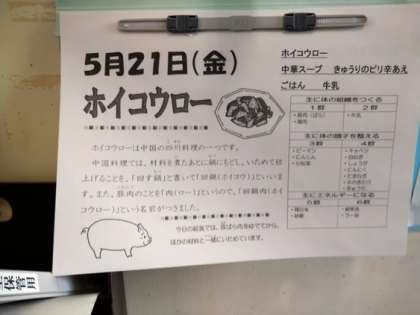 5月21日(金)
ホイコウロー
ホイコウロー
中華スープ きゅうりのピリ辛あえ
ごはん 牛乳
ホイコウローは中国の四川料理の一つです。
中国料理では、材料を煮たあとに鍋にもどし、いためて仕
上げることを、「回す鍋」と書いて「回鍋(ホイコウ)」といいま
す。また、豚肉のことを「肉(ロー)」というので、「回鍋肉(ホイ
コウロー)」という名前がつきました。
今日の給食では、豚ばら肉をゆでてから、
ほかの材料と一緒にいためています。
主に体の組織をつくる
1群 2群
・牛乳
主に体の調子を整える
3群 4群
・ピーマン ・キャベツ
・にんじん
・しょうが
・にんにく
・たまねぎ
・きゅうり
主にエネルギーになる
5群 6群
保管用